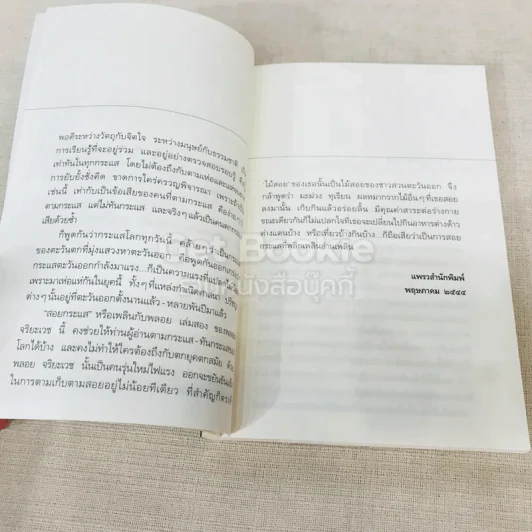 พอดีระหว่างวัตถุกับจิตใจ ระหว่างมนุษย์กับธรรมชาติ
การเรียนรู้ที่จะอยู่ร่วม และอยู่อย่างตรวจสอบรอบรู้
เท่าทันในทุกกระแส โดยไม่ต้องถึงกับตามเห่อและแห่
การยับยั้งชั่งคิด ขาดการใคร่ครวญพิจารณา เพราะ
เช่นนี้ เท่ากับเป็นข้อเสียของคนที่ตามกระแส คือ
ตามกระแส แต่ไม่ทันกระแส และจริงๆ แล้วเป็นคน
เสียด้วยซ้ำ
ก็พูดกันว่ากระแสโลกทุกวันนี้ คล้ายๆ ว่าเป็น
ตะวันตกที่มุ่งแสวงหาตะวันออก คือพูดกันว่า
กระแสตะวันออกกำลังมาแรง...ก็เป็นความแรงที่
เพราะมาเห่อแห่กันในยุคนี้ ทั้งๆ ที่แหล่งกำเนิด
ต่างๆ นั้นอยู่ที่ตะวันออกตั้งนานแล้ว-หลายพันปีมาแล้ว
"สอยกระแส" หรือเพลินกับพลอย เล่มสอง ของพลอย
จริยะเวช นี้ คงช่วยให้ท่านผู้อ่านตามกระแส-ทันกระแส
โลกได้บ้าง และคงไม่ทำให้ใครต้องถึงกับตกยุคตกสมัย ด้วย
พลอย จริยะเวช นั้นเป็นคนรุ่นใหม่ไฟแรง ออกจะขยันขันแข็ง
ในการตามเก็บตามสอยอยู่ไม่น้อยทีเดียว ที่สำคัญก็ตรงที่
'ไม้สอย' ของเธอนั้นเป็นไม้สอยของชาวสวนตะวันออก จึง
กล้าพูดว่า มะม่วง ทุเรียน ผลหมากรากไม้อื่นๆ ที่เธอสอย
ลงมานั้น เก็บกินแล้วอร่อยลิ้น มีคุณค่าสาระต่อร่างกาย
ขณะเดียวกันก็ไม่แปลกใจที่เธอจะเปลี่ยนไปกินอาหารต่างด้าว
ต่างแดนบ้าง หรือเที่ยวบ้างกินบ้าง ..ก็ถือเสียว่าเป็นการสอย
กระแสที่พลิกเพลินล้านเพลิน
แพรวสำนักพิมพ์
พฤษภาคม ๒๕๔๔
Bot Bookie
หนังสือบุ๊คกี้